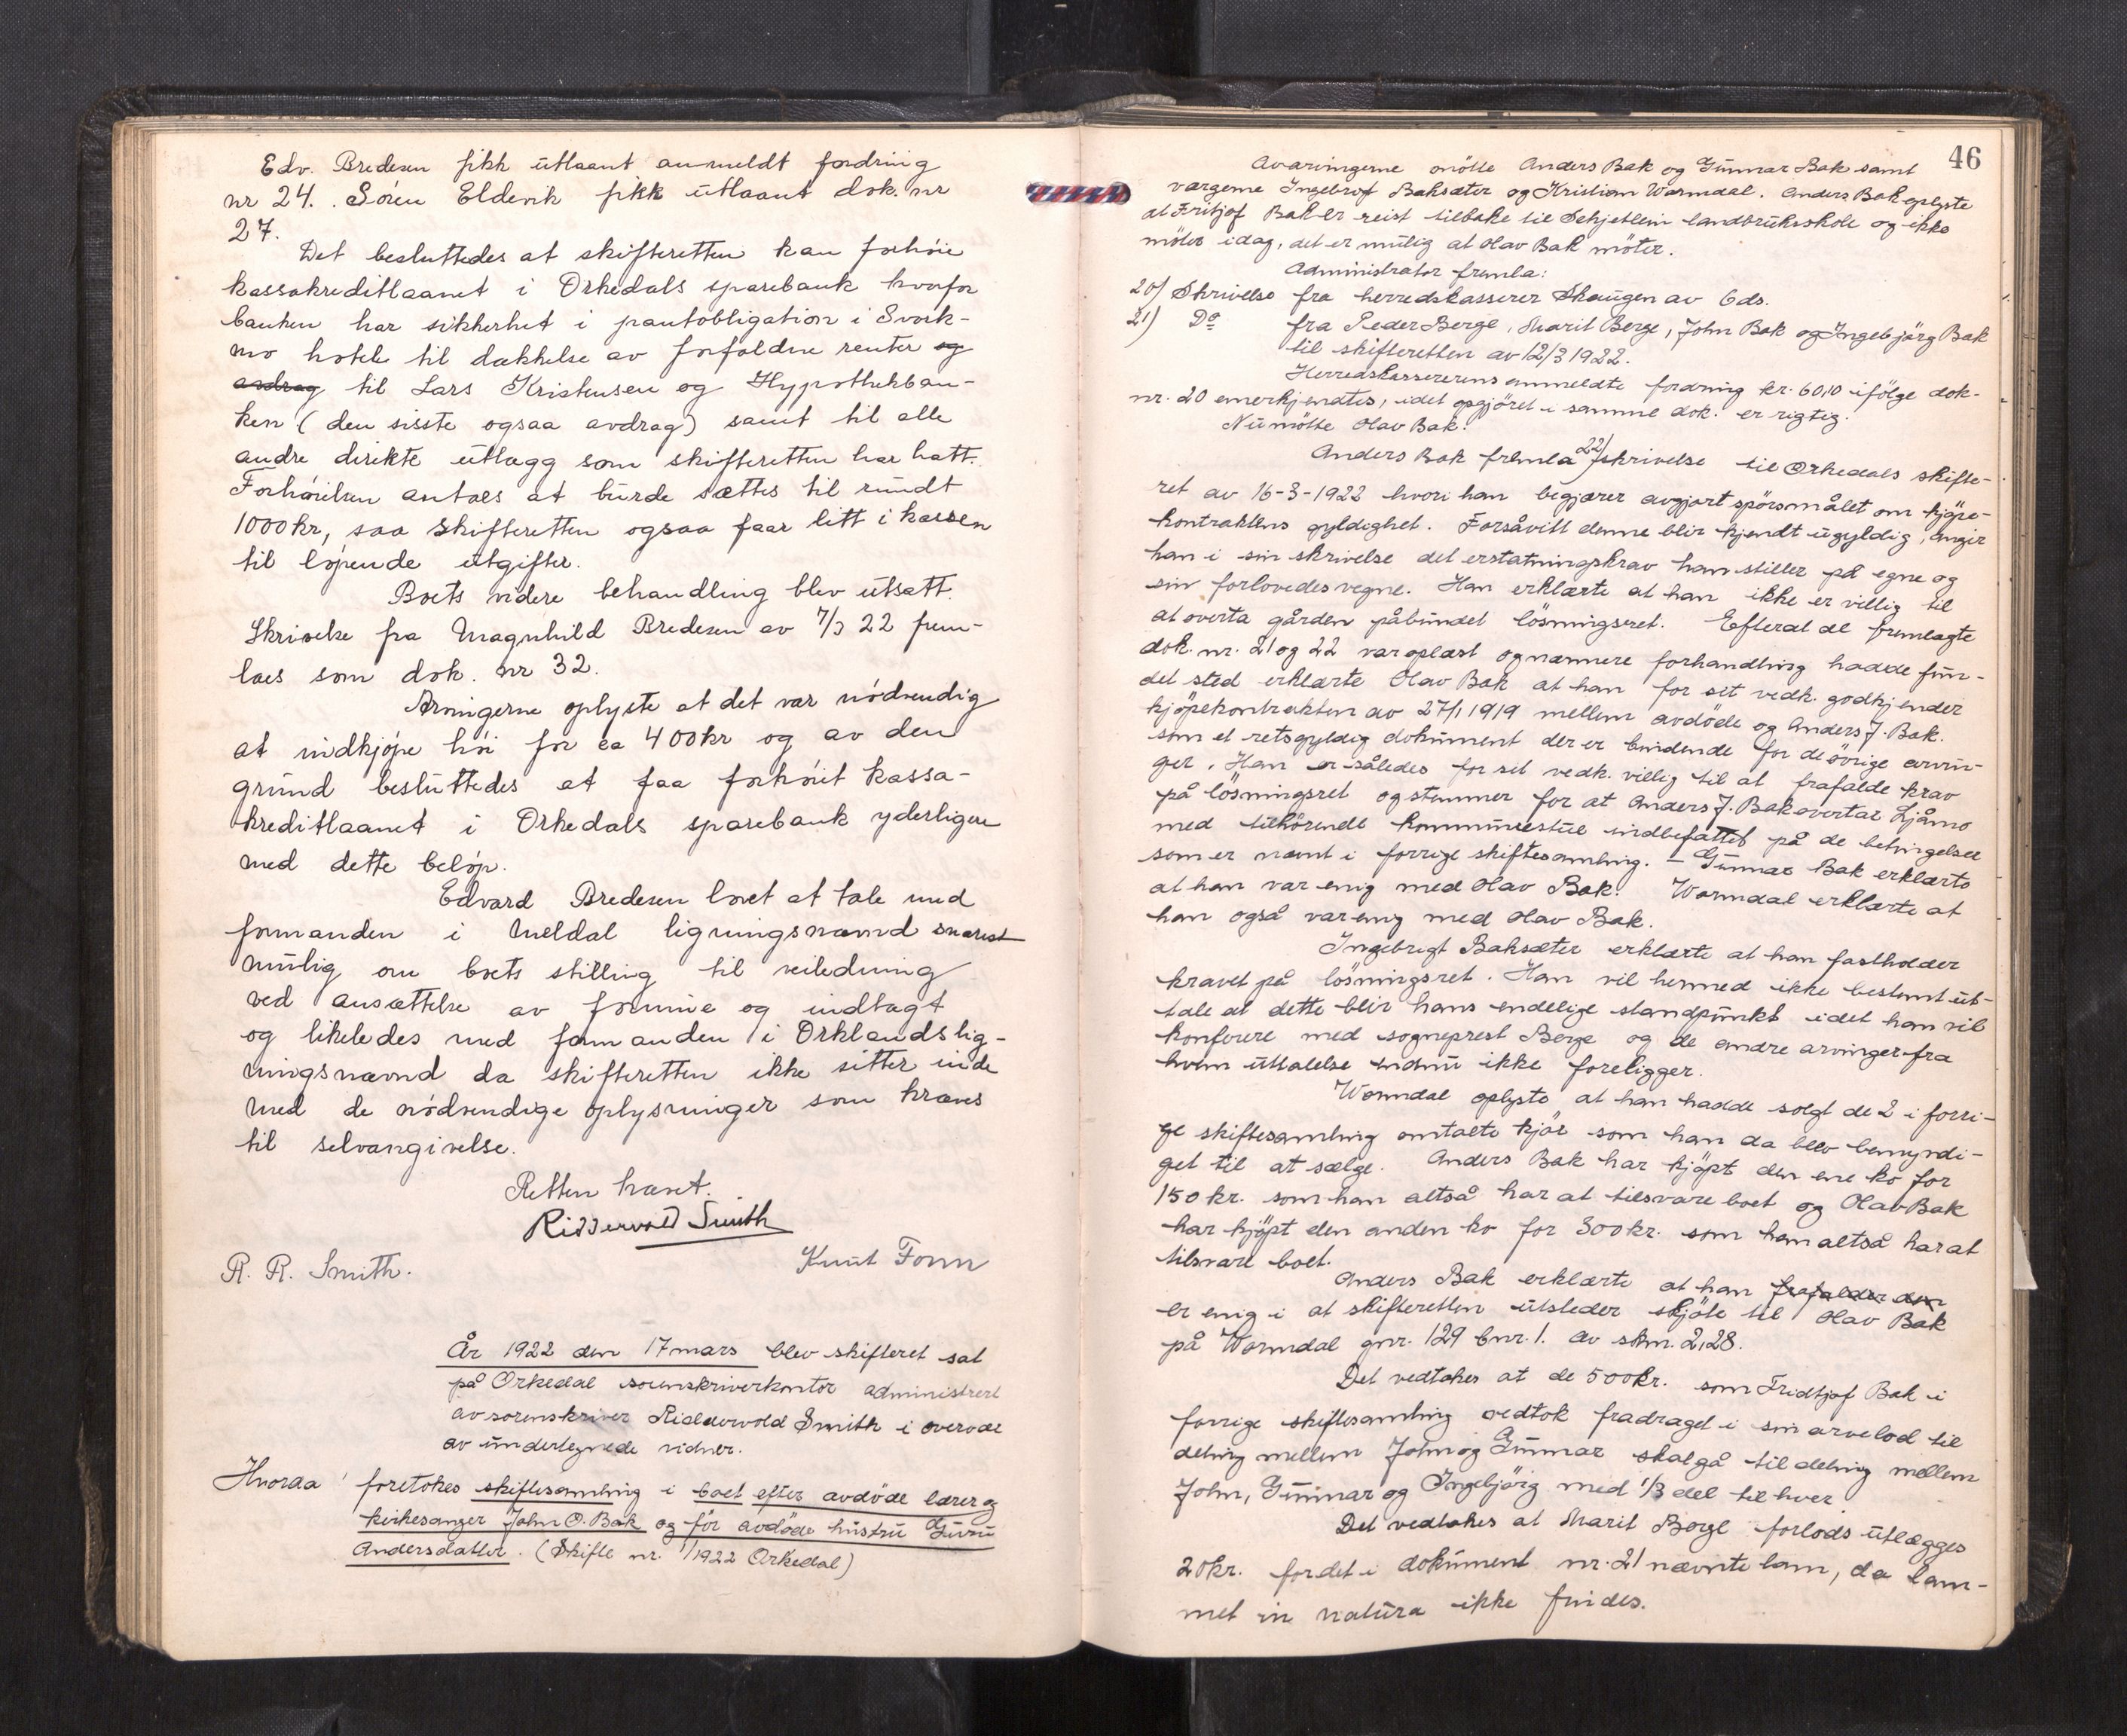 Edv. Bredesen fikk utlaant anmeldt fordring
nr 24. Sören Eldevik fikk utlaant dok. nr
27.
Det besluttedes at skifteretten kan forhöie
kassakreditlaanet i Orkedals sparebank hvorfor
banken har sikkerhet i pantobligation i Svork-
mo hotel til dækkelse av forfaldne renter og
avdrag til Lars Kristensen og Hypothekban-
ken (den sisste ogsaa avdrag) samt til alle
andre direkte utlægg som skifteretten har hatt.
Forhöielsen antaes at burde sættes til rundt
1000 kr, saa skifteretten ogsaa faar litt i kassen
til löpende utgifter.
Boets videre behandling blev utsatt.
Skrivelse fra Magnhild Bredesen av 7/3 22 frem-
laes som dok. nr 32.
Arvingerne oplyste at det var nödvendig
at indkjöpe höi for ca 400 kr og av den
grund besluttedes at faa forhöiet kassa-
kreditlaanet i Orkedals sparebank yderligere
med dette belöp.
Edvard Bredesen lovet at tale med
formanden i Meldal ligningsnævnd snarest
mulig om boets stilling til veiledning
ved ansættelse av formue og indtægt
og likeledes med formanden i Orklands lig-
ningsnævnd da skifteretten ikke sitter inde
med de nödvendige oplysninger som kræves
til selvangivelse.
Retten hævet.
Riddervold Smith
R. R. Smith. Knut Fonn
År 1922 den 17 mars blev skifteret sat
på Orkedal sorenskriverkontor administrert
av sorenskriver Ridderwold Smith i overvær
av undertegnede vidner.
Hvoraa foretokes skiftesamling i boet efter avdöde lærer og
kirkesanger John O. Bak og för avdöde hustru Guru
Andersdatter. (Skifte nr. 1/1922 Orkedal)
46
Av arvingerne mötte Anders Bak og Gunnar Bak samt
vargerne Ingebrigt Baksæter og Kristian Wormdal. Anders Bak oplyste
at Fritjof Bak er reist tilbake til Skjetlein landbruksskole og ikke
möter idag, det er mulig at Olav Bak möter.
Administrator fremla:
20/ Skrivelse fra herredskasserer Skaugen av 6 ds.
21) Do fra Peder Berge, Marit Berge, John Bak og Ingebjörg Bak
til skifteretten av 12/3 1922.
Herredskassererens anmeldte fordring kr. 60,10 ifölge dok-
nr. 20 anerkjendtes, idet opgjöret i samme dok. er rigtig.
Nu mötte Olav Bak.
Anders Bak fremla 22/ skrivelse til Orkedals skifte-
ret av 16-3-1922 hvori han begjærer avgjort spörsmålet om kjöpe-
kontraktens gyldighet. Forsåvitt denne blir kjendt ugyldig, angir
han i sin skrivelse det erstatningskrav han stiller på egne og
sin forlovedes vegne. Han erklærte at han ikke er villig til
at overta gården påbundet lösningsret. Efterat de fremlagte
dok. nr. 21 og 22 var oplæst og nærmere forhandling hadde fun-
det sted erklærte Olav Bak at han for sit vedk. godkjender
kjöpekontrakten av 27/1 1919 mellem avdöde og Anders J. Bak.
som et retsgyldig dokument der er bindende for de övrige arvin-
ger. Han er således for sit vedk. villig til at frafalde krav
på lösningsret og stemmer for at Anders J. Bak overtar Ljåmo
med tilhörende kommunestue indbefattet på de betingelser
som er nævnt i forrige skiftesamling. – Gunnar Bak erklærte
at han var enig med Olav Bak. Wormdal erklærte at
han også var enig med Olav Bak.
Ingebrigt Baksæter erklærte at han fastholder
kravet på lösningsret. Han vil hermed ikke bestemt ut-
tale at dette blir hans endelige standpunkt idet han vil
konferere med sogneprest Berge og de andre arvinger fra
hvem uttalelse endnu ikke foreligger.
Wormdal oplyste at han hadde solgt de 2 i forri-
ge skiftesamling omtalte kjör som han da blev bemyndi-
get til at sælge. Anders Bak har kjöpt den ene ko for
150 kr. som han altså har at tilsvare boet og Olav Bak
har kjöpt den anden ko for 300 kr. som han altså har at
tilsvare boet.
Anders Bak erklærte at han frafalder den
er enig i at skifteretten utsteder skjöte til Olav Bak
på Wormdal gnr. 129 bnr. 1. av skm. 2,28.
Det vedtokes at de 500 kr. som Fridtjof Bak i
forrige skiftesamling vedtok fradraget i sin arvelod til
deling mellem John og Gunnar skal gå til deling mellem
John, Gunnar og Ingebjörg med 1/3 del til hver
Det vedtokes at Marit Berge forlods utlægges
20 kr. for det i dokument nr. 21 nævnte lam, da lam-
met in natura ikke findes.